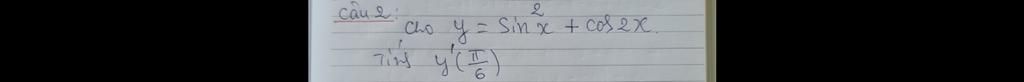 Câu 2:
Cho y = Sin²x + cos2x.
Tính y'(π/6)